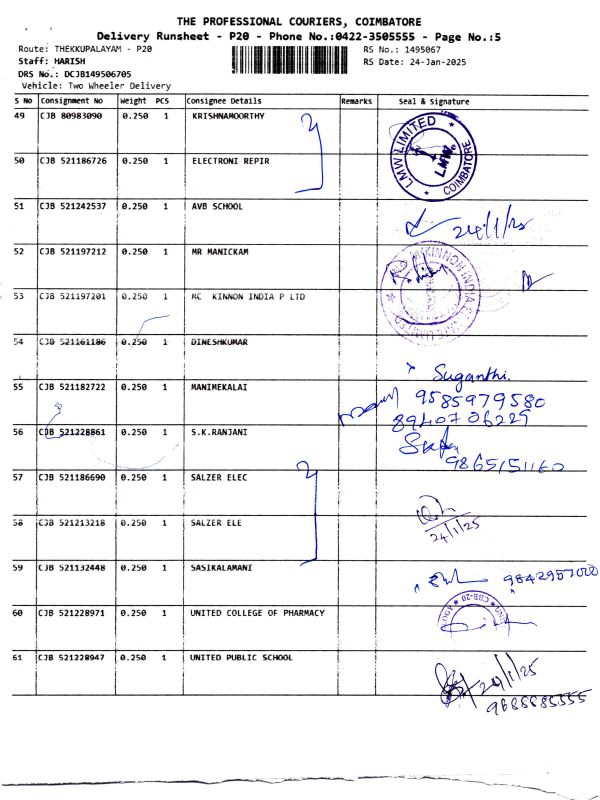 THE PROFESSIONAL COURIERS, COIMBATORE
Delivery Runsheet - P20 - Phone No.:0422-3505555 - Page No.:5
Route: THEKKUPALAYAM - P20 RS No.: 1495067
Staff: HARISH RS Date: 24-Jan-2025
DRS No.: DCJB149506705
Vehicle: Two Wheeler Delivery
S No Consignment No Weight PCS Consignee Details Remarks Seal & Signature
49 CJB 80983090 0.250 1 KRISHNAMOORTHY
LMW LIMITED COIMBATORE LMW
50 CJB 521186726 0.250 1 ELECTRONI REPIR
51 CJB 521242537 0.250 1 AVB SCHOOL
24/1/25
52 CJB 521197212 0.250 1 MR MANICKAM
53 CJB 521197201 0.250 1 MC KINNON INDIA P LTD
KINNON INDIA LIMITED
54 CJB 521161186 0.250 1 DINESHKUMAR
Suganthi.
55 CJB 521182722 0.250 1 MANIMEKALAI 9585979580
8940706229
56 CJB 521228861 0.250 1 S.K.RANJANI
9865151160
57 CJB 521186690 0.250 1 SALZER ELEC
58 CJB 521213218 0.250 1 SALZER ELE
24/1/25
59 CJB 521132448 0.250 1 SASIKALAMANI
9842957000
CBE-20
60 CJB 521228971 0.250 1 UNITED COLLEGE OF PHARMACY
61 CJB 521228947 0.250 1 UNITED PUBLIC SCHOOL
24/1/25